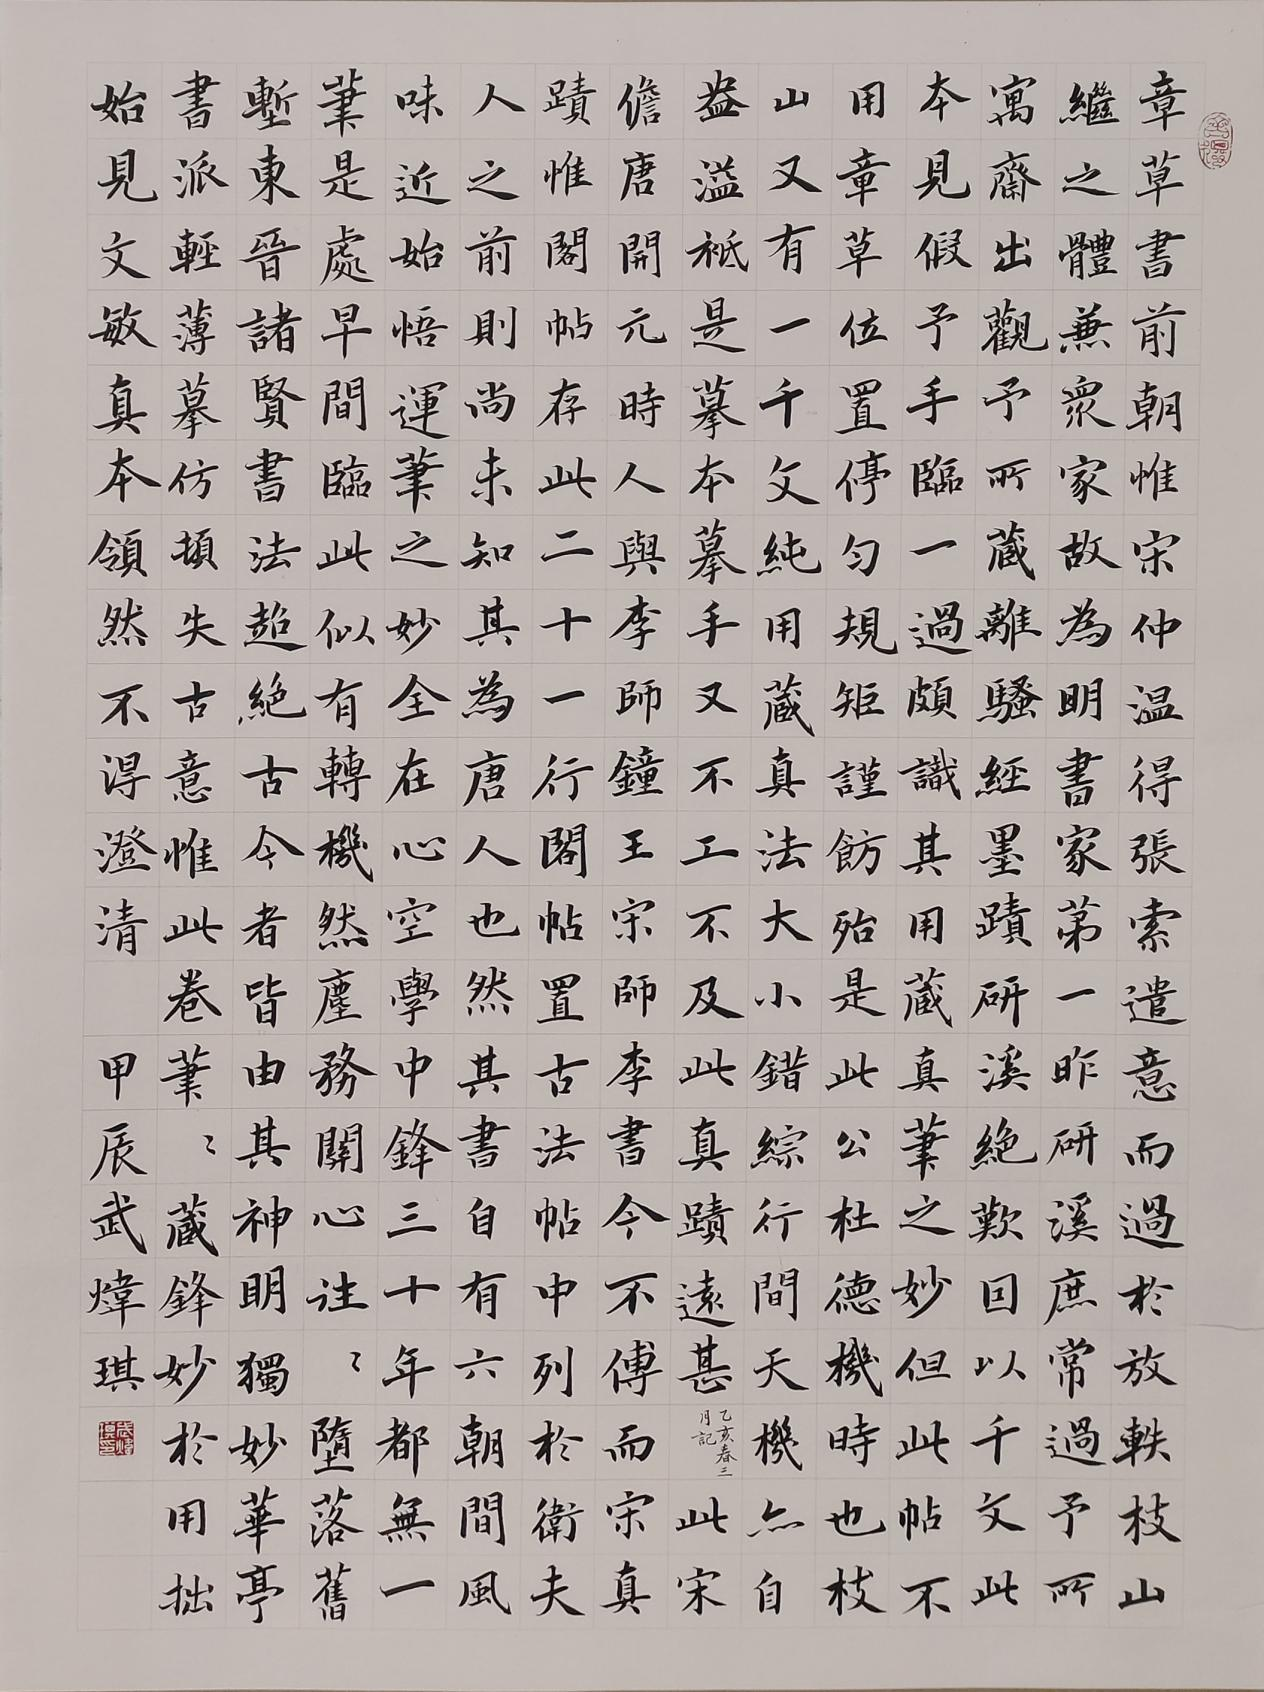 章草書前朝惟宋仲温得張索遣意而過於放軼枝山
繼之體兼衆家故為明書家苐一昨研溪庶常過予所
寓齋出觀予所蔵離騷經墨蹟研溪絶歎回以千文此
本見假予手臨一過頗識其用蔵真筆之妙但此帖不
用章草位置停匀規矩謹飭殆是此公杜德機時也枝
山又有一千文純用蔵真法大小錯綜行間天機亦自
盎溢祗是摹本摹手又不工不及此真蹟遠甚
乙亥春三
月記
此宋
儋唐開元時人與李師鐘王宋師李書今不傳而宋真
蹟惟閣帖存此二十一行閣帖置古法帖中列於衛夫
人之前則尚未知其為唐人也然其書自有六朝間風
味近始悟運筆之妙全在心空學中鋒三十年都無一
筆是處早間臨此似有轉機然塵務關心註〻墮落舊
塹東晉諸賢書法超絶古今者皆由其神明獨妙華亭
書派輕薄摹仿頓失古意惟此卷筆〻蔵鋒妙於用拙
始見文敏真本領然不淂澄清 甲辰武煒琪